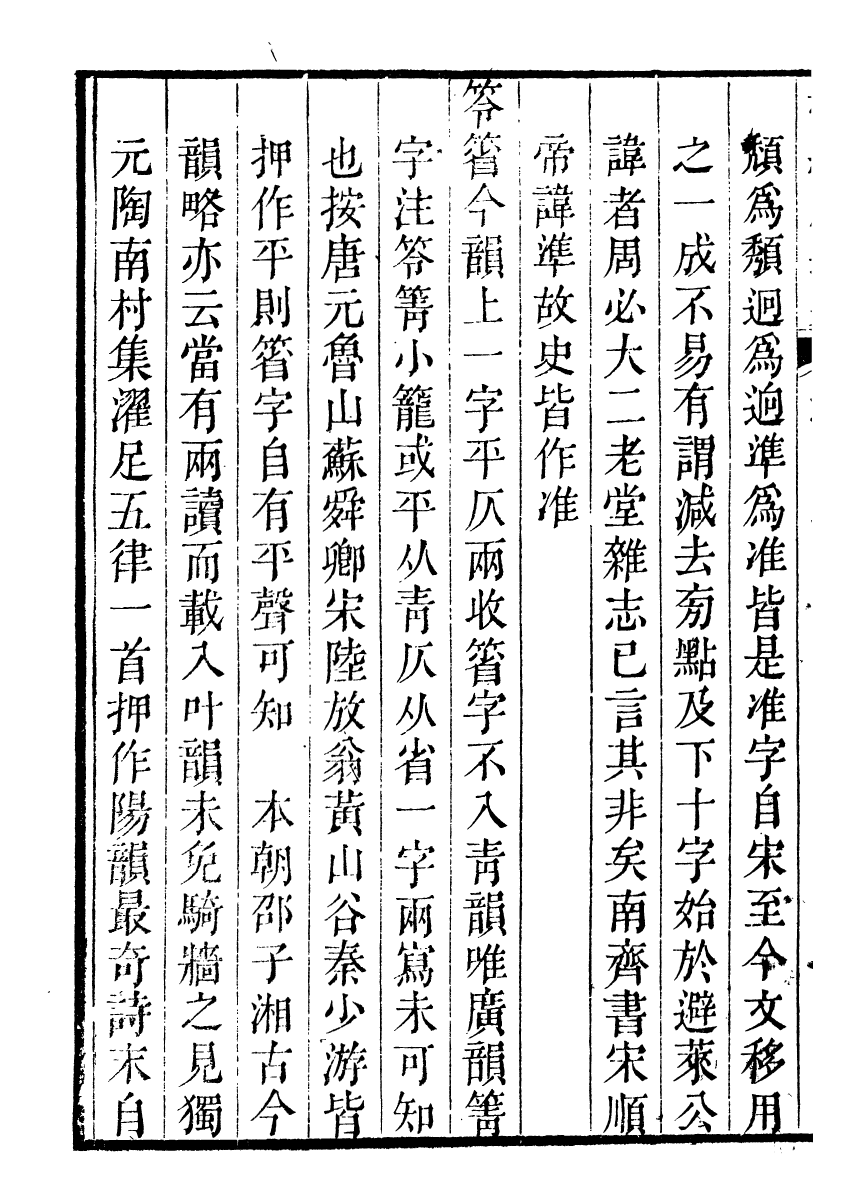 頹爲頽迥爲逈準爲准皆是准字自宋至今文移用
之一成不易有謂減去旁點及下十字始於避萊公
諱者周必大二老堂雜志已言其非矣南齊書宋順
帝諱準故史皆作准
笭箵今韻上一字平仄兩收箵字不入青韻唯廣韻篟
字注笭篟小籠或平从青仄从省一字兩寫未可知
也按唐元魯山蘇舜卿宋陸放翁黃山谷秦少游皆
押作平則箵字自有平聲可知　本朝邵子湘古今
韻略亦云當有兩讀而載入叶韻未免騎牆之見獨
元陶南村集濯足五律一首押作陽韻最奇詩末自